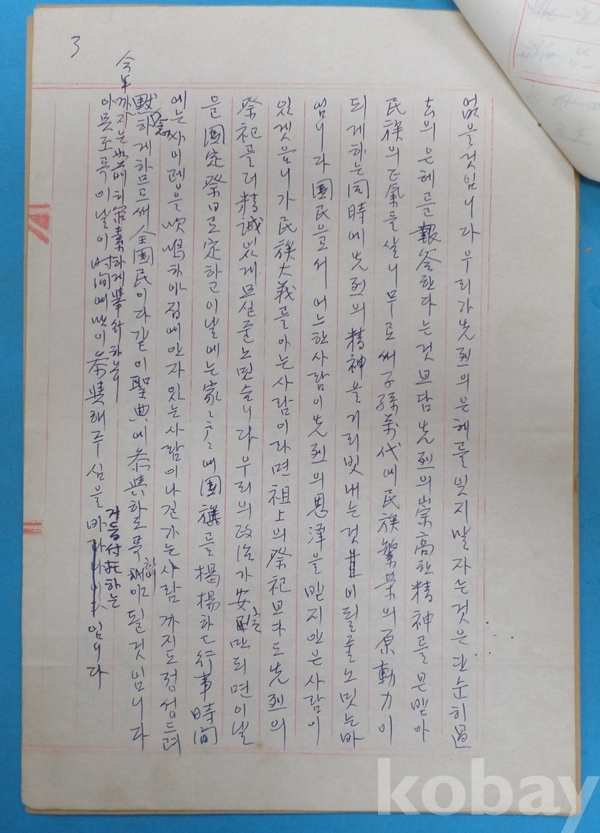 3
없을것임니다 우리가先烈의 은혜를 잇지 말자는것은 단순히 過
去의 은혜를 報答한다는것 보담 先烈의 崇高한 精神을 본받아
民族의 正氣를 살니무로써 子孫萬代에 民族繁栄의 原動力이
되게하는 同時에 先烈의 精神을 거리 빗내는것 이 될줄노 밋는바
임니다 國民으로서 어느한사람이 先烈의 恩澤을 밋지안은 사람이
있겟음니가 民族大義를 아는사람이라면 祖上의 祭祀보다도 先烈의
祭祀를 더 精誠있게 모실줄노 밋슴니다 우리의 政治가 安定만되면 이날
을 國定祭日로 定하고 이날에는 家家戶戶에 國旗를 揭揚하고 行事時間
에는 싸이렌을 吹鳴하야 집에 안자 있는사람이나 건가는 사람 까지도 정성드려
黙念하게하므로써 全國民이 다같이 聖典에 参與하도록 해야 될것임니다
今年까지는 簡素하게 擧行하는
아모조록 이날이 時间에 만이 参與해 주심을 바라 임니다
거듭付託하는
kobay